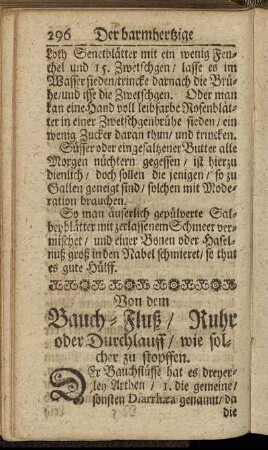 296 Der barmhertzige
Loth Senetblätter mit ein wenig Fen-
chel und 15. Zwetschgen / lasse es im
Wasser sieden / trincke darnach die Brü-
he / und isse die Zwetschgen. Oder man
kan eine Hand voll leibfarbe Rosenblät-
ter in einer Zwetschgenbrühe sieden / ein
wenig Zucker daran thun / und trincken.
Süsser oder eingesaltzener Butter alle
Morgen nüchtern gegessen / ist hierzu
dienlich / doch sollen die jenigen / so zu
Gallen geneigt sind / solchen mit Mode-
ration brauchen.
So man äuserlich gepülverte Sal-
beyblätter mit zerlassenem Schmeer ver-
mischet / und einer Bonen oder Hasel-
nuß groß in den Nabel schmieret / so thut
es gute Hülff.
Von dem
Bauch-Fluß / Ruhr
oder Durchlauff / wie sol-
cher zu stopffen.
DEr Bauchflüsse hat es dreyer-
ley Arthen / 1. die gemeine /
sonsten Diarrhæa genannt / da
die